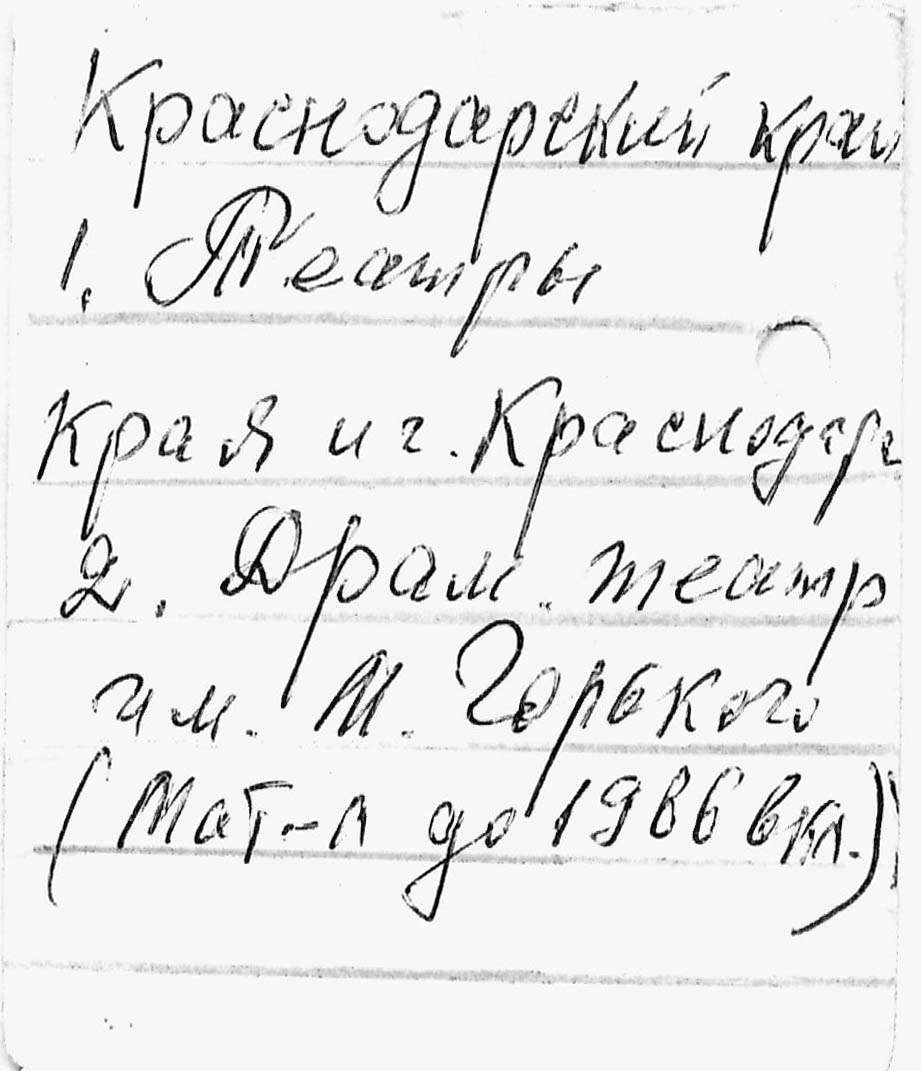 Краснодарский край
1. Театры
края и г. Краснодара
2. Драм. театр
им. М. Горького
(Мат-л до 1986 вкл.)